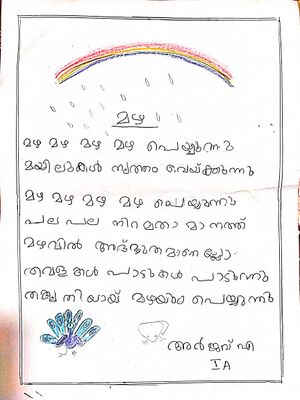 മഴ
മഴ മഴ മഴ മഴ പെയ്യുന്നു
മയിലുകൾ നൃത്തം വെയ്ക്കുന്നു
മഴ മഴ മഴ മഴ പെയ്യുന്നു
പല പല നിറമതാ മാനത്ത്
മഴവിൽ അത്ഭുതമാണല്ലോ
തവളകൾ പാട്ടുകൾ പാടുന്നു
തകൃതിയായ് മഴയിതാ പെയ്യുന്നു
അർജുൻ എ
I A